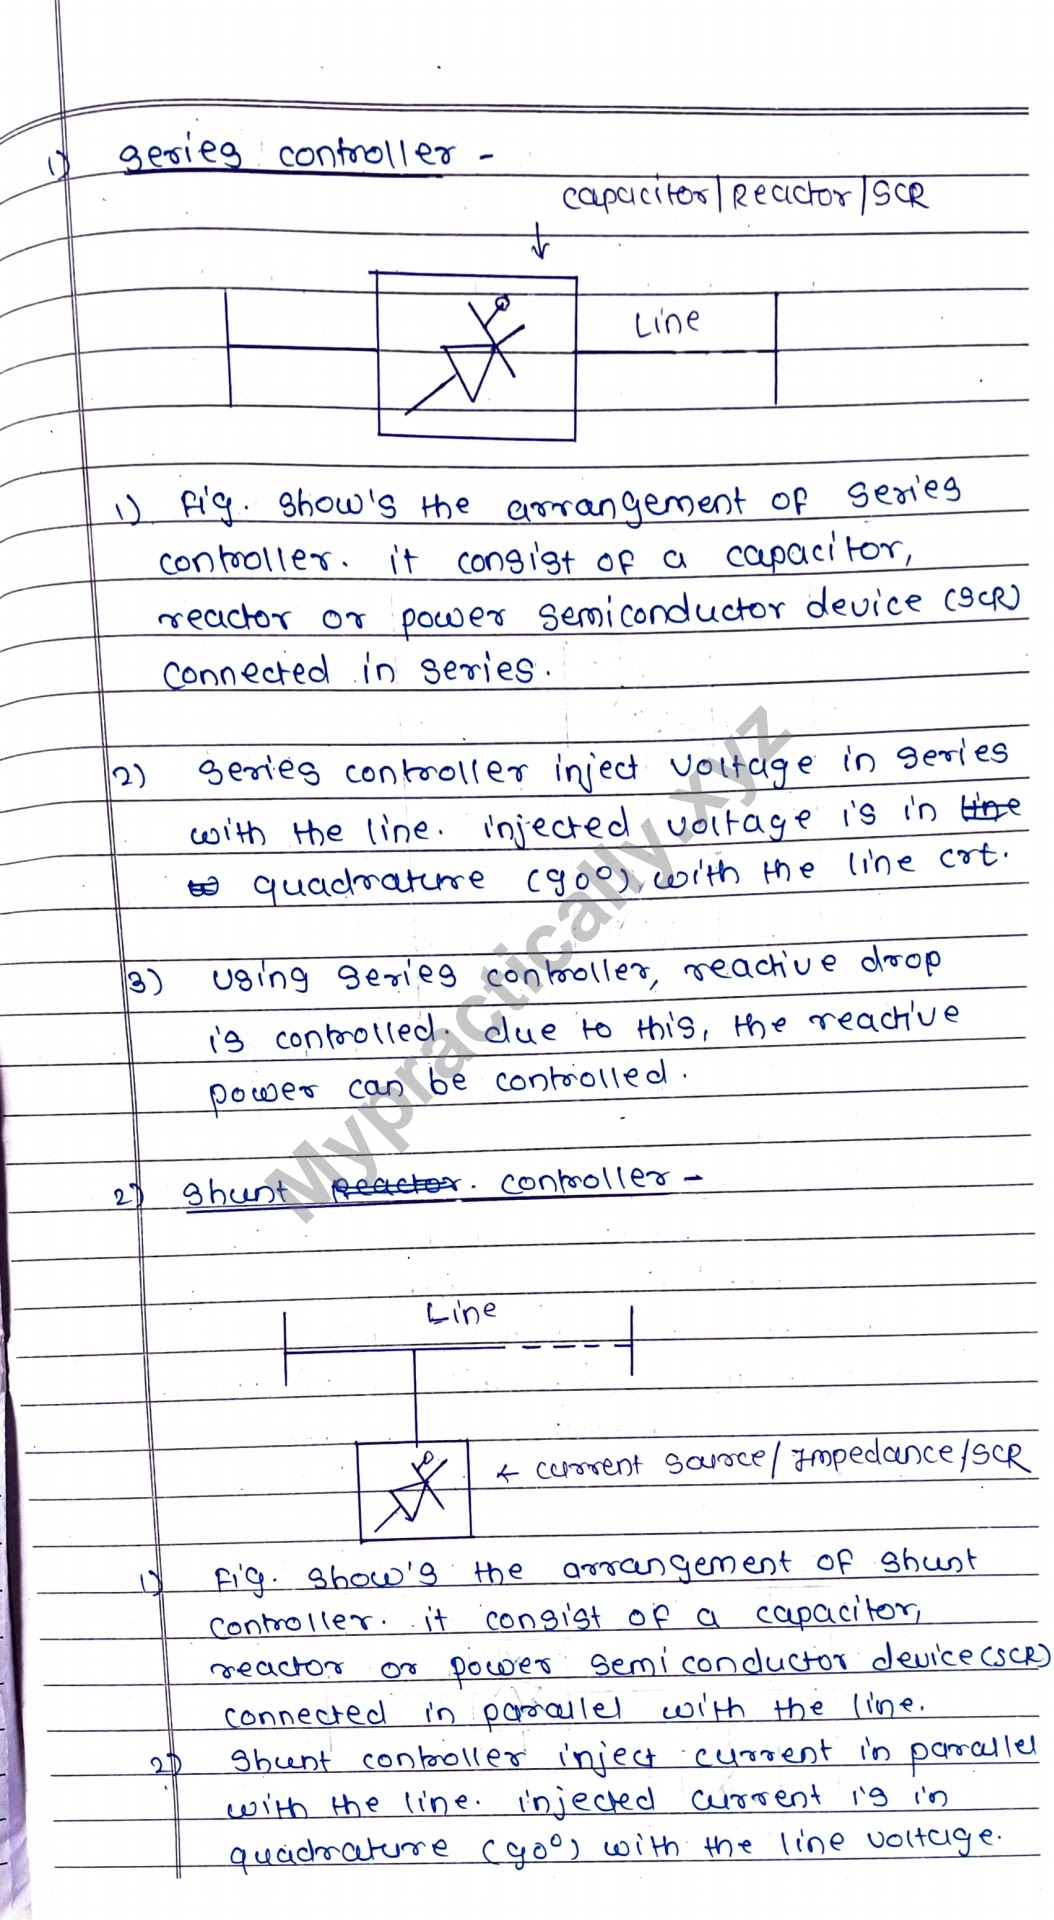 1) series controller -
capacitor/Reactor/SCR
Line
1) Fig. show's the arrangement of series
controller. it consist of a capacitor,
reactor or power semiconductor device (SCR)
connected in series.
2) series controller inject voltage in series
with the line. injected voltage is in line
quadrature (90°) with the line crt.
3) using series controller, reactive drop
is controlled. due to this, the reactive
power can be controlled.
2) shunt Reactor. controller -
Line
← current source/Impedance/SCR
1) Fig. show's the arrangement of shunt
controller. it consist of a capacitor,
reactor or power semiconductor device (SCR)
connected in parallel with the line.
2) shunt controller inject current in parallel
with the line. injected current is in
quadrature (90°) with the line voltage.
Mypractically.xyz